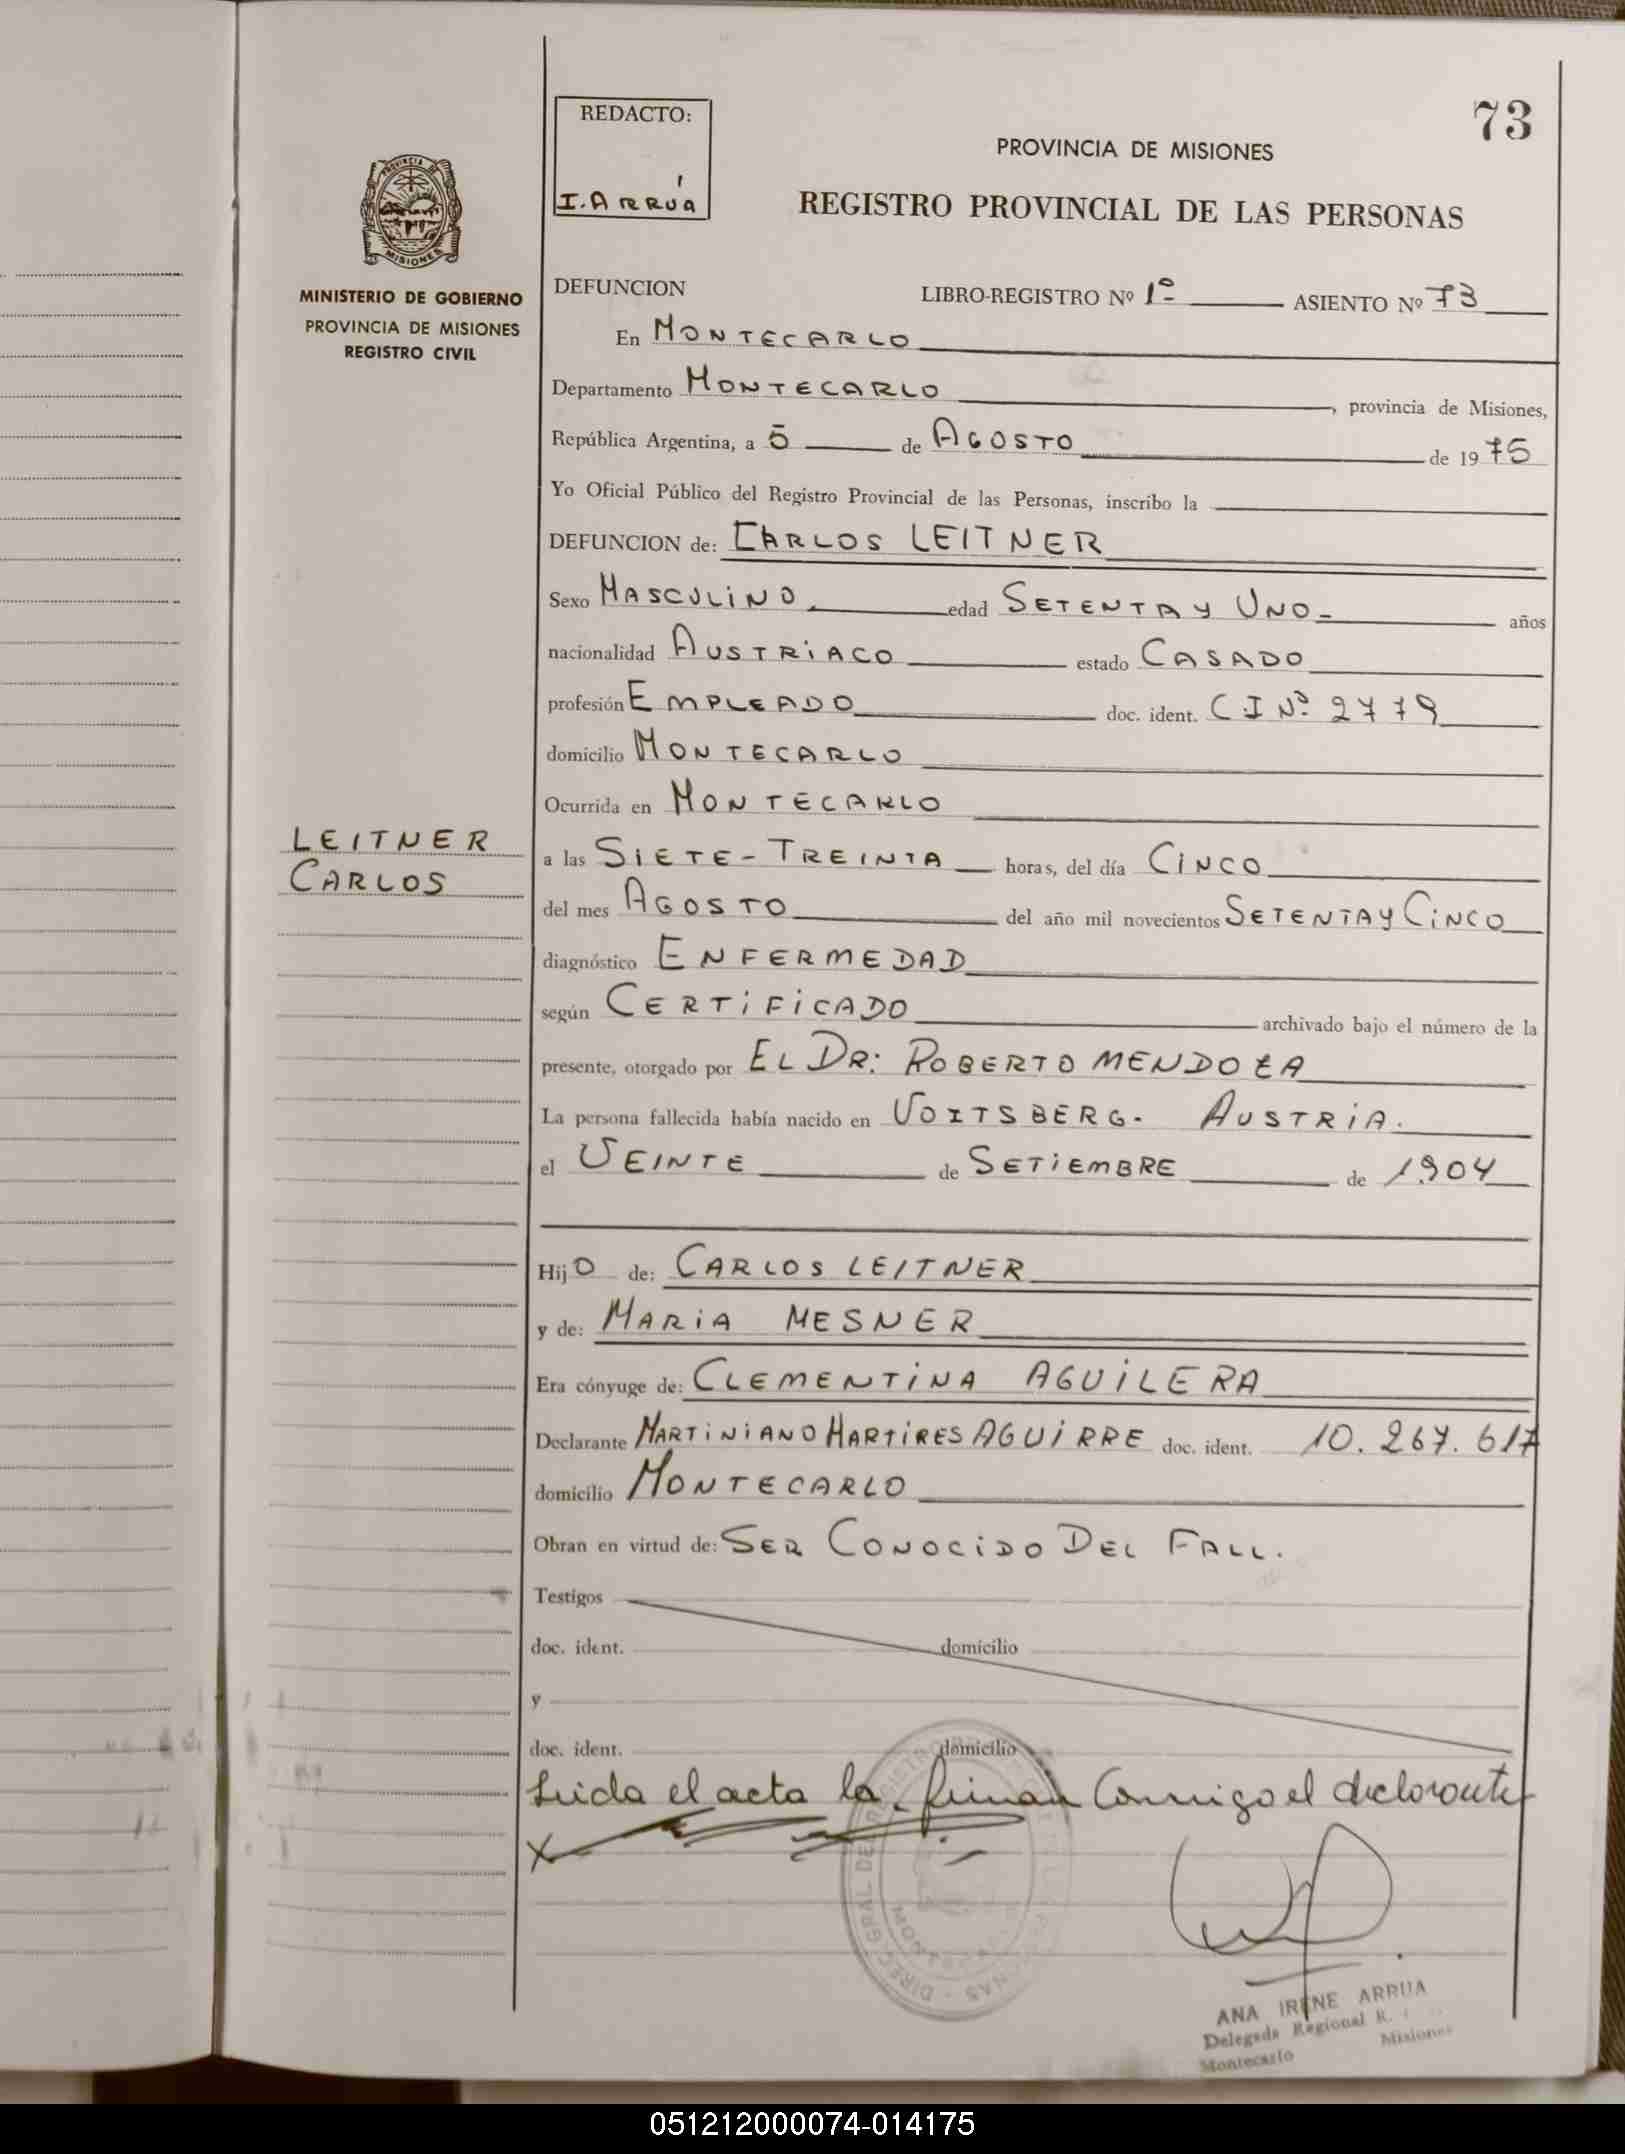 73
REDACTO:
I. ARRÚA
PROVINCIA DE MISIONES
REGISTRO PROVINCIAL DE LAS PERSONAS
PROVINCIA DE
MISIONES
MINISTERIO DE GOBIERNO
PROVINCIA DE MISIONES
REGISTRO CIVIL
DEFUNCION LIBRO-REGISTRO Nº 1º ASIENTO Nº 73
En MONTECARLO
Departamento MONTECARLO, provincia de Misiones,
República Argentina, a 5 de AGOSTO de 1975
Yo Oficial Público del Registro Provincial de las Personas, inscribo la
DEFUNCION de: CARLOS LEITNER
Sexo MASCULINO edad SETENTA Y UNO- años
nacionalidad AUSTRIACO estado CASADO
profesión EMPLEADO doc. ident. C.I Nº 2779
domicilio MONTECARLO
Ocurrida en MONTECARLO
LEITNER
CARLOS
a las SIETE-TREINTA horas, del día CINCO
del mes AGOSTO del año mil novecientos SETENTA Y CINCO
diagnóstico ENFERMEDAD
según CERTIFICADO archivado bajo el número de la
presente, otorgado por EL DR: ROBERTO MENDOZA
La persona fallecida había nacido en VOITSBERG- AUSTRIA.
el VEINTE de SETIEMBRE de 1904
Hijo de: CARLOS LEITNER
y de: MARIA MESNER
Era cónyuge de: CLEMENTINA AGUILERA
Declarante MARTINIANO MARTIRES AGUIRRE doc. ident. 10.267.617
domicilio MONTECARLO
Obran en virtud de: SER CONOCIDO DEL FALL.
Testigos
doc. ident. domicilio
y
doc. ident. domicilio
Leida el acta la firman Conmigo el declarante
X
ANA IRENE ARRUA
Delegada Regional R.
Montecarlo Misiones
051212000074-014175